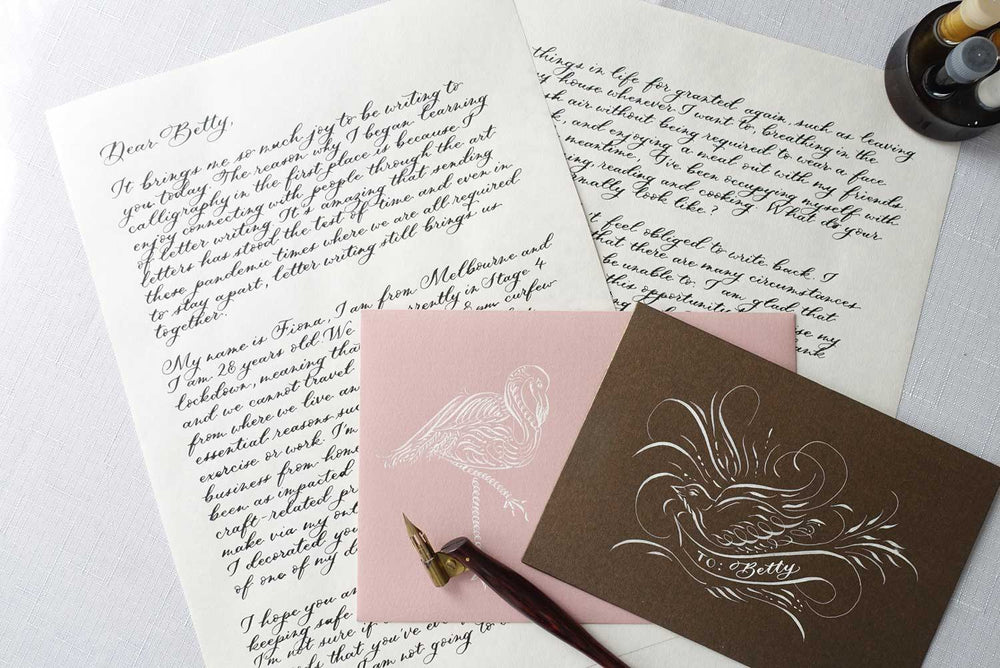 Dear Betty,
It brings me so much joy to be writing to
you today. The reason why I began learning
calligraphy in the first place is because I
enjoy connecting with people through the art
of letter writing. It's amazing that sending
letters has stood the test of time and even in
these pandemic times where we are all required
to stay apart, letter writing still brings us
together.
My name is Fiona, I am from Melbourne and
I am 28 years old. We currently in Stage 4
lockdown, meaning curfew
and we cannot travel
from where we live
essential reasons
exercise or work. I'm
business from home
been as impacted
craft-related
make via my
I decorated
of one of my
I hope you
keeping safe
I'm not sure if
that you've
am not going to
things in life for granted again, such as leaving
house whenever I want to, breathing in the
air without being required to wear a face
and enjoying a meal out with my friends.
meantime, I've been occupying myself with
reading and cooking. What do your
look like?
feel obliged to write back. I
that there are many circumstances
be unable to. I am glad that
this opportunity
my
TO: Betty